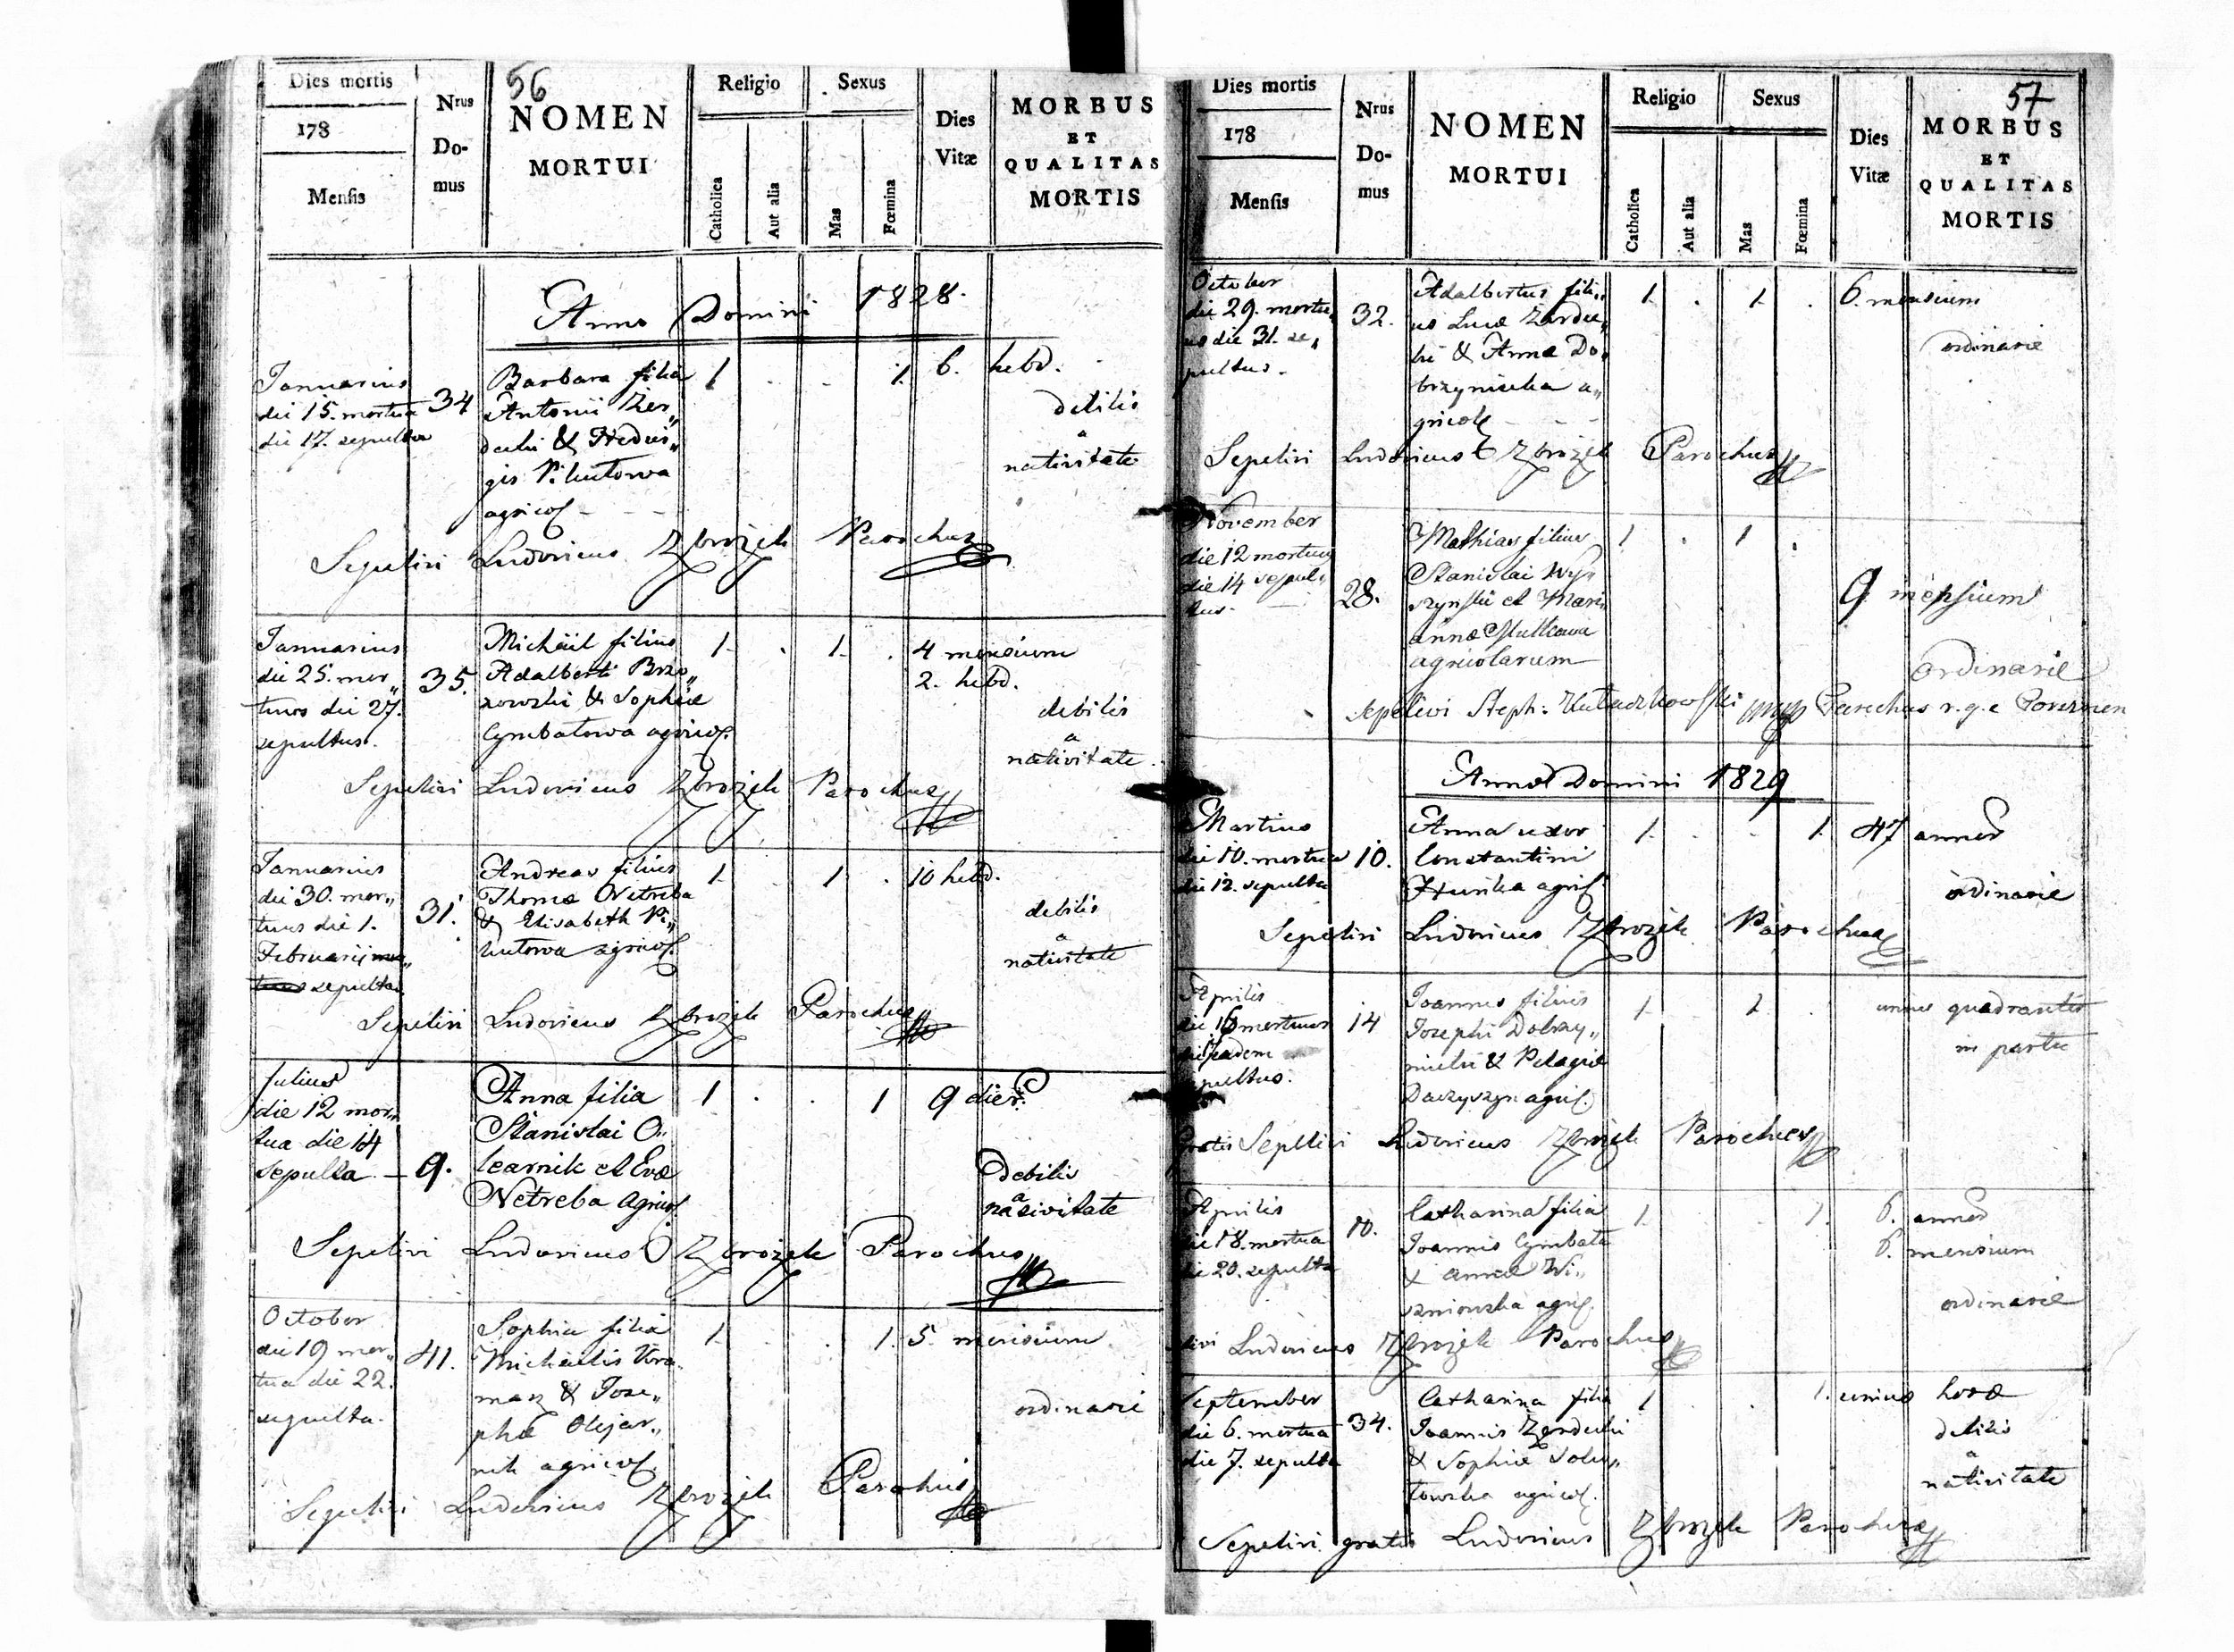 Dies mortis
178
Mensis
Nrus
Do-
mus
56
NOMEN
MORTUI
Religio
Catholica
Aut alia
Sexus
Mas
Fœmina
Dies
Vitæ
MORBUS
ET
QUALITAS
MORTIS
Anno Domini 1828.
Januarius Barbara filia 1 . . 1. 6. hebd.
die 15. mortua 34 Antonii Zer„ debilis
die 17. sepulta decki & Hedvi„ a
gis Pikutowa nativitate
agricol
Sepelivi Ludovicus Zbrożek Parochus
Januarius Michael filius 1. . 1. . 4 mensium
die 25. mor„ 35. Adalberti Brzo„ 2. hebd.
tuus die 27. zowski & Sophiæ debilis
sepultus. Cymbatowa agricol. a
nativitate
Sepelivi Ludovicus Zbrożek Parochus
Januarius Andreas filius 1. 1 . 10 hebd.
die 30. mor„ Thomæ Netreba debilis
tuus die 1. 31. & Elisabeth Pi„ a
Februarii kutowa agricol. nativitate
sepultus
Sepelivi Ludovicus Zbrożek Parochus
Julius Anna filia 1 . . 1 9 dier.
die 12 mor„ Stanislai O„
tua die 14 learnik et Evæ Debilis
sepulta – 9. Netreba agricol. a
nativitate
Sepelivi Ludovicus Zbrożek Parochus
October Sophia filia 1. . . 1. 5 mensium
die 19 mor„ 41. Michaelis
tua die 22. & Jose„ ordinarie
sepulta. phæ Olejar„
nik agricol.
Sepelivi Ludovicus Zbrożek Parochus
Dies mortis
178
Mensis
Nrus
Do-
mus
NOMEN
MORTUI
Religio
Catholica
Aut alia
Sexus
Mas
Fœmina
Dies
Vitæ
57
MORBUS
ET
QUALITAS
MORTIS
October Adalbertus fili„ 1. . 1. . 6. mensium
die 29. mortu„ 32. us Lucæ
us die 31. se„ & Anna Do„ ordinarie
pultus. brzyniecka a„
gricol
Sepelivi Ludovicus Zbrożek Parochus
November Mathias filius 1 . 1 .
die 12 mortuus Stanislai Wy„
die 14 sepul„ 28. szynski et Mari 9 mensium
tus. anna
agricolarum ordinarie
sepelivi Steph: Parochus r. g. c
Anno Domini 1829
Martius Anna uxor 1. . . 1. 47 annor
die 10. mortua 10. Constantini
die 12. sepulta Hunka agric. ordinarie
Sepelivi Ludovicus Zbrożek Parochus
Aprilis Joannes filius 1. 1. . unius quadrantis
die 16 mortuus 14 Josephi Dobrzy„ in partu
die eadem niecki & Pelagiæ
sepultus. agric.
Gratis Sepelivi Ludovicus Zbrożek Parochus
Aprilis Catharina filia 1. 1. 6. annor
die 18. mortua 10. Joannis Cymbata 6. mensium
die 20. sepulta & Annæ Wi„
szniowska agric. ordinarie
Ludovicus Zbrożek Parochus
September Catharina filia 1 . 1. unius horæ
die 6. mortua 34. Joannis Zerdecki debilis
die 7. sepulta & Sophiæ Solu„ a
towska agricol. nativitate
Sepelivi gratis Ludovicus Zbrożek Parochus